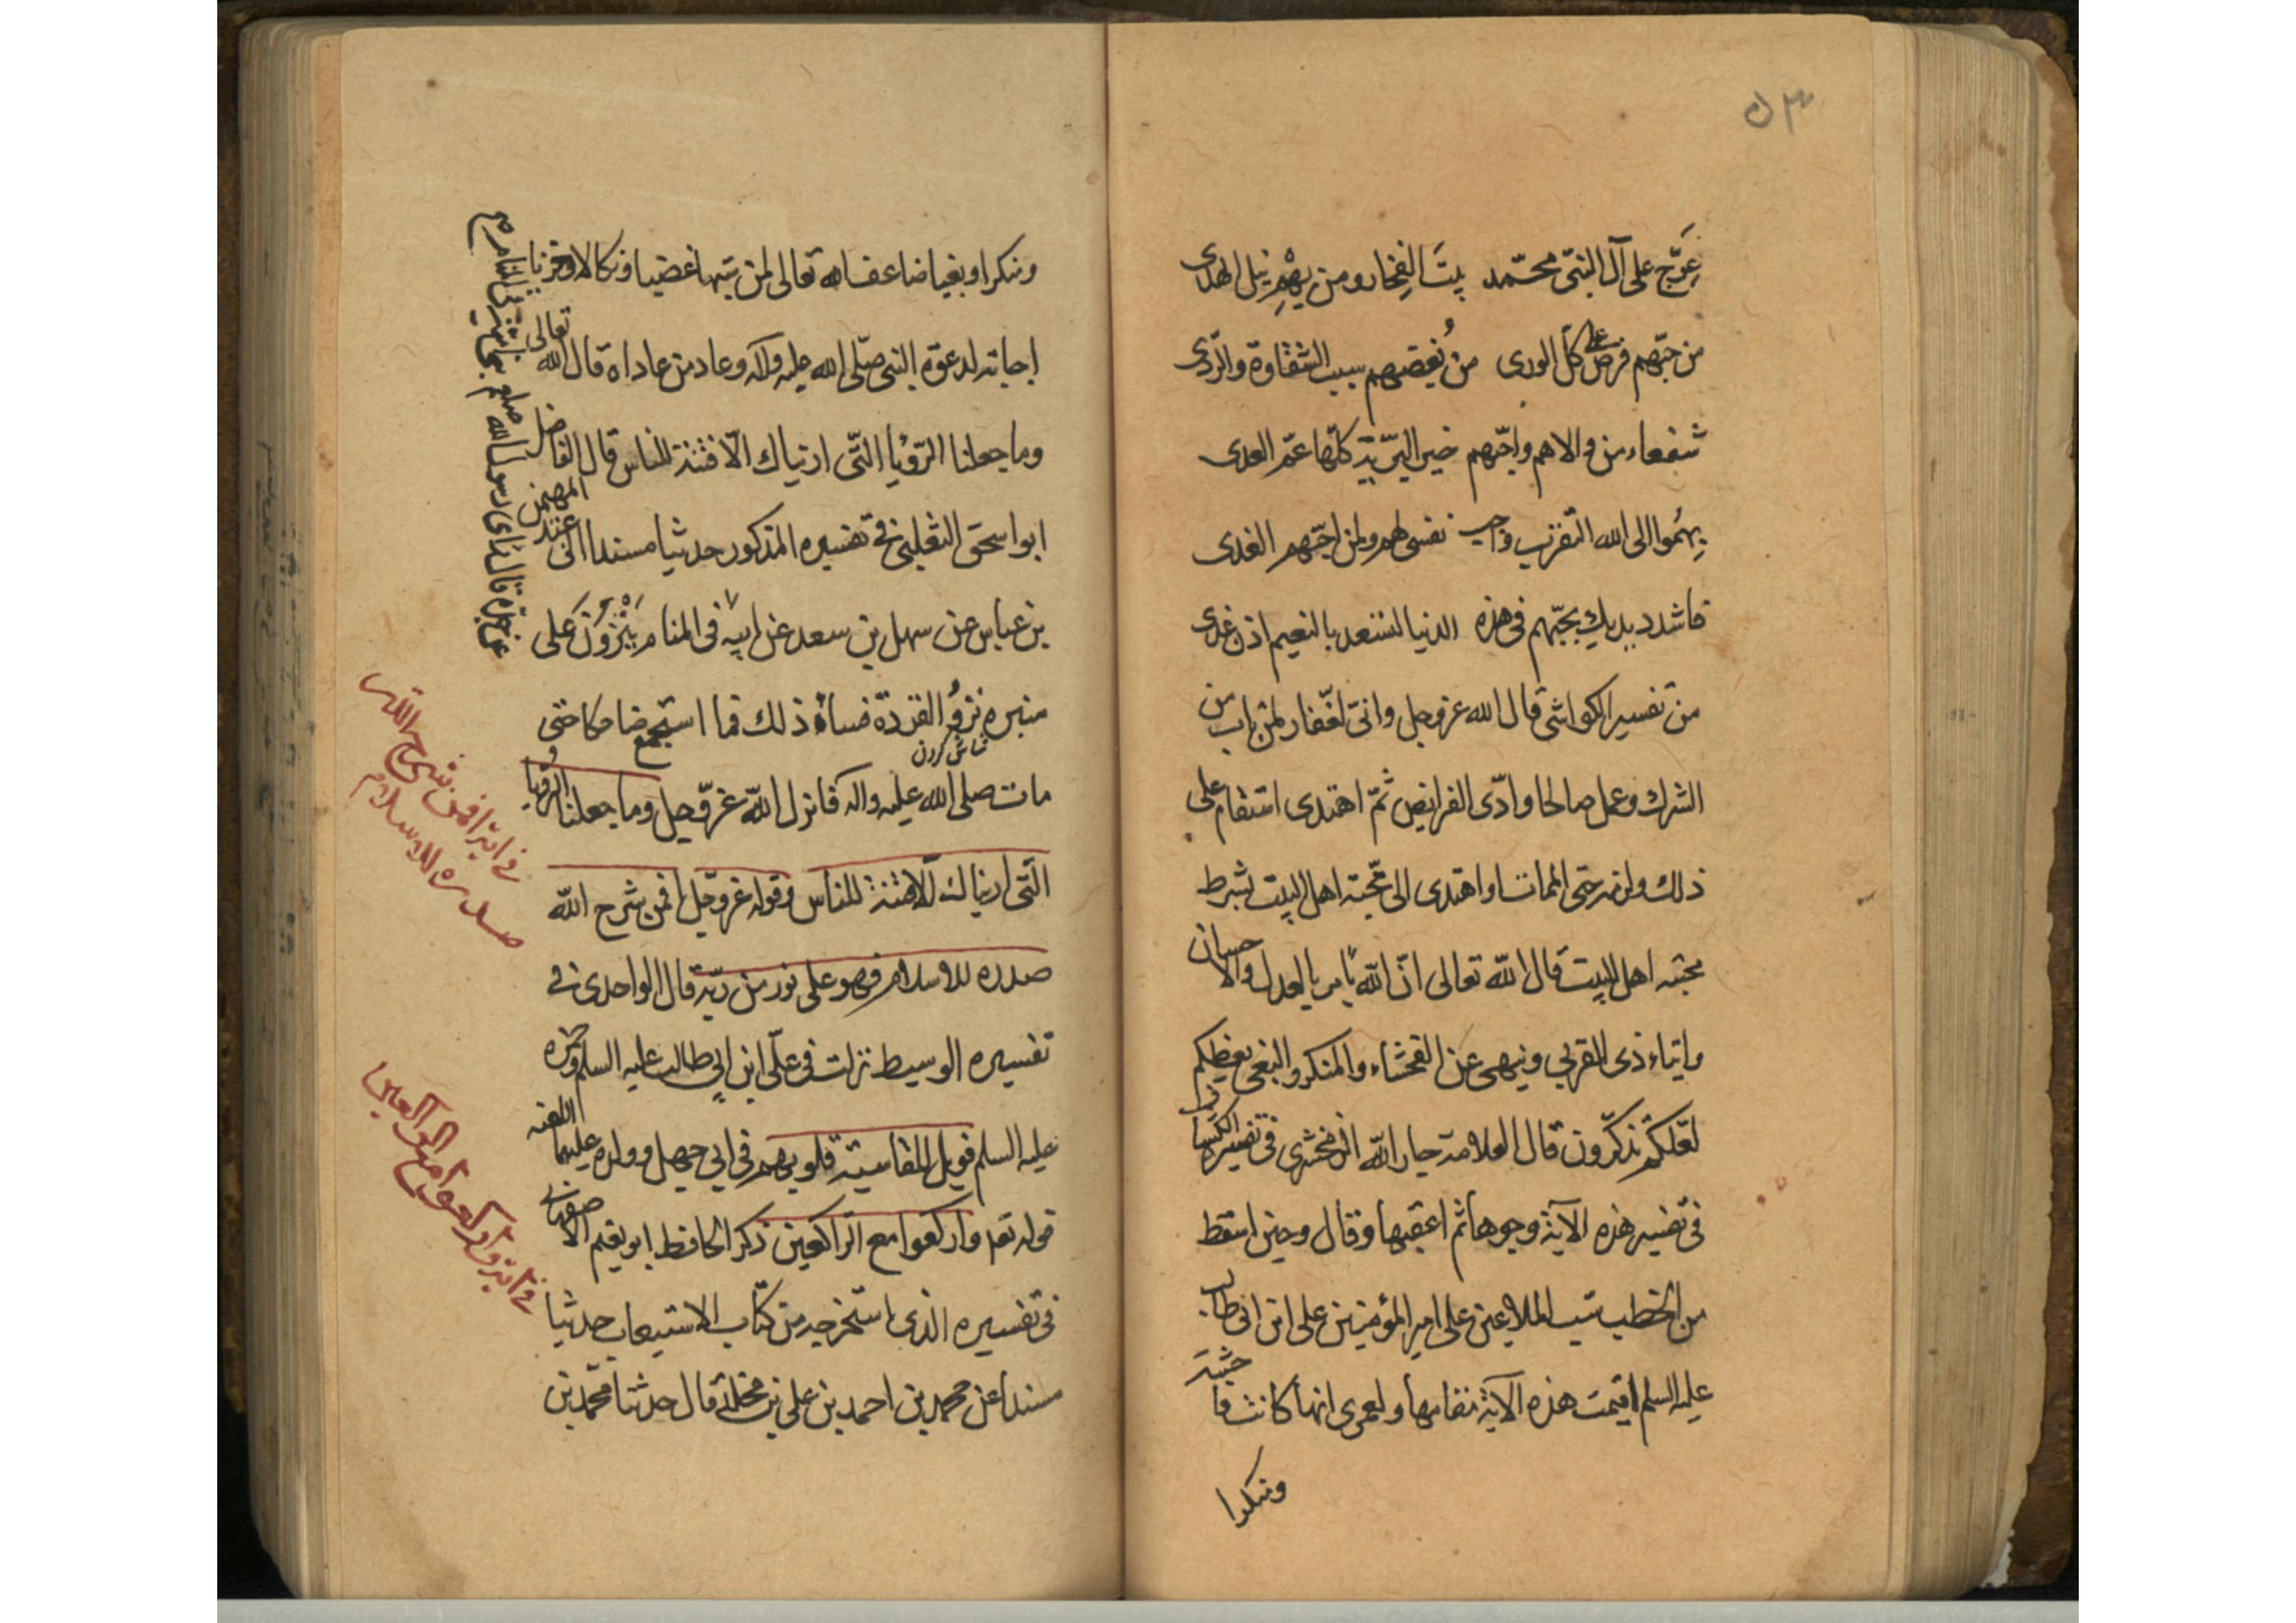 عَرِّج على آل النبىّ محمّد بيتَ الفخار ومن بهم نيل الهدى
من حبّهم فرض على كلّ الورى من بُغضهم سبب الشقاوة والرّدى
شفعاء من والاهم واحبّهم خير البريّة كلّها عمّ العدى
يهُموا الى الله التقرب واجب نفسى لهم ولمن احبّهم الفدى
فاشدد يديك بحبّهم فى هذه الدنيا لتسعد بالنعيم اذن غدى
من تفسير الكواشى قال الله عز وجل وانّى لغفّار لمن تاب من
الشرك وعمل صالحا وادّى الفرايض ثمّ اهتدى استقام على
ذلك ولزمه حتى الممات او اهتدى الى محّبة اهل البيت بشرط
محبّة اهل البيت قال الله تعالى انّ الله يأمر بالعدل والاحسان
وايتاء ذى القربى وينهى عن الفحشاء والمنكر والبغى يعظكم
لعّلكم تذكّرون قال العلامة جار الله الزمخشرى فى تفسيره الكشاف
فى تفسير هذه الآية وجوها ثم اعقبها وقال وحين اسقط
من الخطب سب الملاعين على امير المؤمنين على ابن ابى طالب
عليه السلم اقيمت هذه الآية مقامها ولعمرى انها كانت فاحشة
ومنكرا
ومنكرا وبغيا ضاعف الله تعالى لمن سنها غضبا ونكالا وخزيا
اجابة لدعوة النبى صلّى الله عليه وآله وعاد من عاداه قال الله تعالى
وما جعلنا الرّؤيا التّى اريناك الّا فتنة للناس قال الفاضل
ابو اسحق الثعلبى فى تفسيره المذكور حديثا مسندا الى عند المهيمن
بن عباس عن سهل بن سعد عن ابيه فى المنام يَنْزُوْنَ على
منبره نزوُ القردة فساءه ذلك فما استجمع ضاحكا حتى
مات صلى الله عليه واله فانزل الله عزّ وجل وما جعلنا الرّؤيا
التّى اريناك الّا فتنة للناس وقوله عز وجّل افمن شرح الله
صدره للاسلام فهو على نور من ربّه قال الواحدى فى
تفسيره الوسيط نزلت فى علّى ابن ابى طالب عليه السلم وحمزة
عليه السلم فويل للقاسية قلوبهم فى ابى جهل وولده عليهما اللعنه
قوله تعه واركعوا مع الراكعين ذكر الحافظ ابو نعيم الاصفهانى
فى تفسيره الذى استخرجه من كتاب الاستيعاب حديثا
مسندا عن محمد بن احمد بن على بن مخلد قال حدثنا محمّد بن
قال رأى رسول الله صلعم
فى اية افمن شرح الله
صدره للاسلام
فى اية واركعوا مع الراكعين